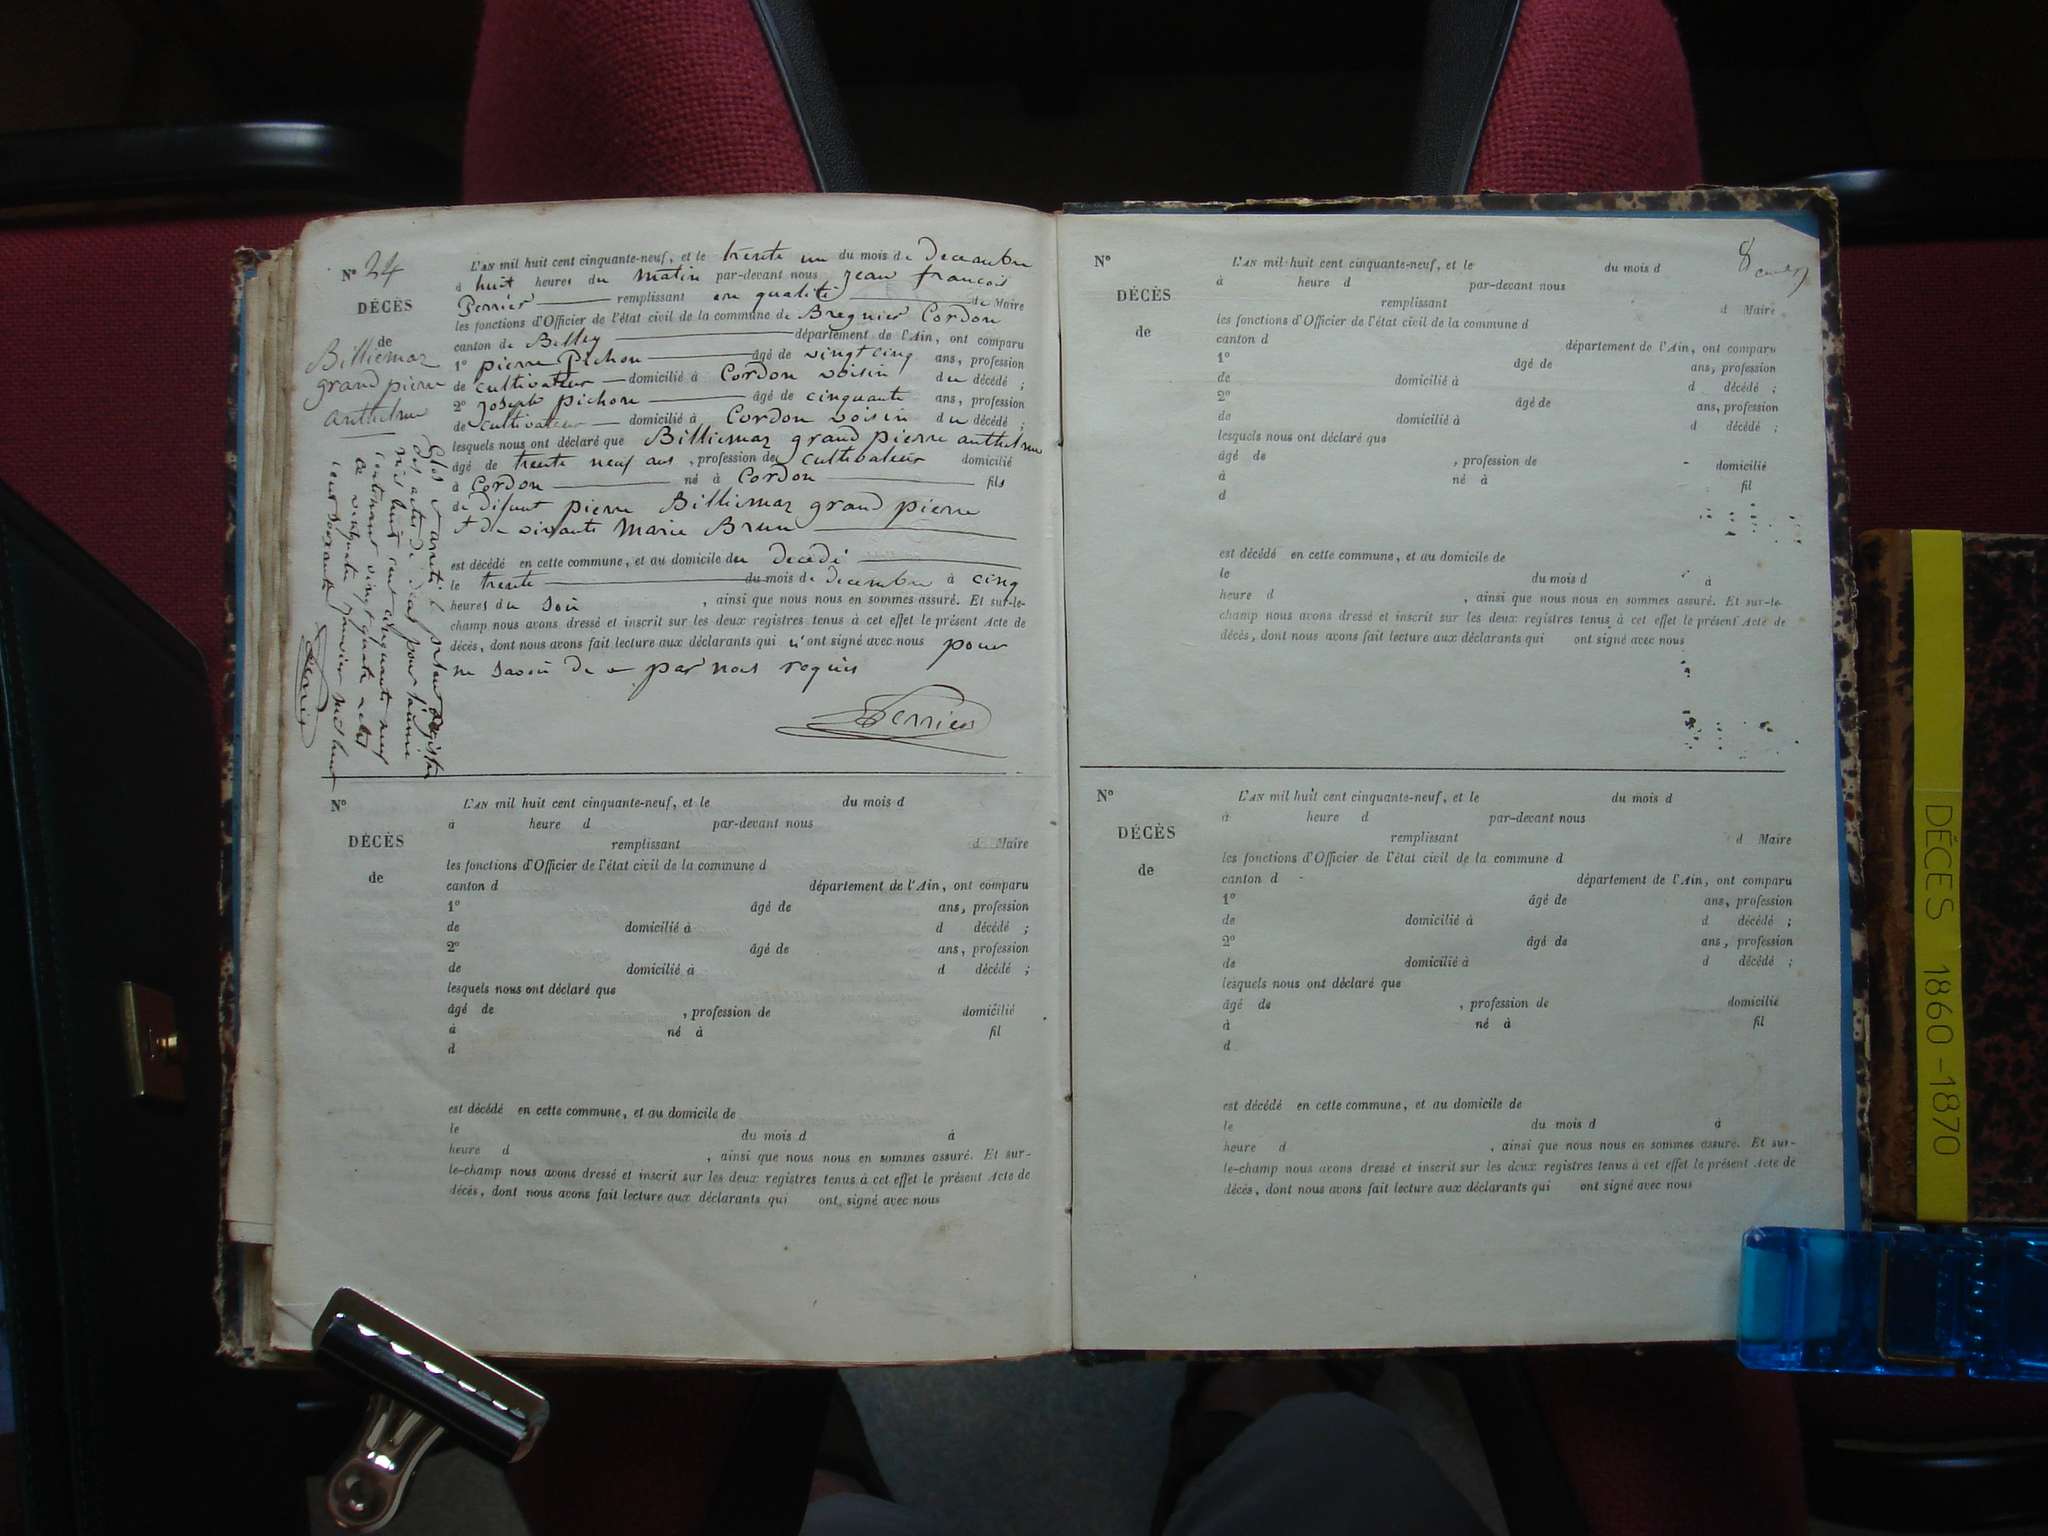 N° 24
DÉCÈS
de
Billiemaz
grand pierre
anthelme
L'AN mil huit cent cinquante-neuf, et le trente un du mois de Decembre
à huit heures du matin par-devant nous jean françois
Perrier remplissant en qualité de Maire
les fonctions d'Officier de l'état civil de la commune de Bregnier Cordon
canton de Belley département de l'Ain, ont comparu
1° pierre Pichon âgé de vingt cinq ans, profession
de cultivateur domicilié à Cordon voisin du décédé ;
2° Joseph pichon âgé de cinquante ans, profession
de cultivateur domicilié à Cordon voisin du décédé ;
lesquels nous ont déclaré que Billiemaz grand pierre anthelme
âgé de trente neuf ans , profession de cultivateur domicilié
à Cordon né à Cordon fils
de difunt pierre Billiemaz grand pierre
et de vivante Marie Brun
est décédé en cette commune, et au domicile du Decédé
le trente du mois de decembre à cinq
heures du soir , ainsi que nous nous en sommes assuré. Et sur-le-
champ nous avons dressé et inscrit sur les deux registres tenus à cet effet le présent Acte de
décès, dont nous avons fait lecture aux déclarants qui n'ont signé avec nous pour
ne savoir de ce par nous requis
Perrier
Clos et arrêté le présent registre
des actes de décès pour l'année
mil huit cent cinquante neuf
contenant vingt quatre actes
ce vingt quatre janvier mil huit
cent soixante
Perrier
N°
DÉCÈS
de
L'AN mil huit cent cinquante-neuf, et le du mois d
à heure d par-devant nous
remplissant d Maire
les fonctions d'Officier de l'état civil de la commune d
canton d département de l'Ain, ont comparu
1° âgé de ans, profession
de domicilié à d décédé ;
2° âgé de ans, profession
de domicilié à d décédé ;
lesquels nous ont déclaré que
âgé de , profession de domicilié
à né à fil
d
est décédé en cette commune, et au domicile de
le du mois d à
heure d , ainsi que nous nous en sommes assuré. Et sur-
le-champ nous avons dressé et inscrit sur les deux registres tenus à cet effet le présent Acte de
décès, dont nous avons fait lecture aux déclarants qui ont signé avec nous
8
N°
DÉCÈS
de
L'AN mil huit cent cinquante-neuf, et le du mois d
à heure d par-devant nous
remplissant d Maire
les fonctions d'Officier de l'état civil de la commune d
canton d département de l'Ain, ont comparu
1° âgé de ans, profession
de domicilié à d décédé ;
2° âgé de ans, profession
de domicilié à d décédé ;
lesquels nous ont déclaré que
âgé de , profession de domicilié
à né à fil
d
est décédé en cette commune, et au domicile de
le du mois d à
heure d , ainsi que nous nous en sommes assuré. Et sur-le-
champ nous avons dressé et inscrit sur les deux registres tenus à cet effet le présent Acte de
décès, dont nous avons fait lecture aux déclarants qui ont signé avec nous
N°
DÉCÈS
de
L'AN mil huit cent cinquante-neuf, et le du mois d
à heure d par-devant nous
remplissant d Maire
les fonctions d'Officier de l'état civil de la commune d
canton d département de l'Ain, ont comparu
1° âgé de ans, profession
de domicilié à d décédé ;
2° âgé de ans, profession
de domicilié à d décédé ;
lesquels nous ont déclaré que
âgé de , profession de domicilié
à né à fil
d
est décédé en cette commune, et au domicile de
le du mois d à
heure d , ainsi que nous nous en sommes assuré. Et sur-
le-champ nous avons dressé et inscrit sur les deux registres tenus à cet effet le présent Acte de
décès, dont nous avons fait lecture aux déclarants qui ont signé avec nous
DÉCES 1860-1870